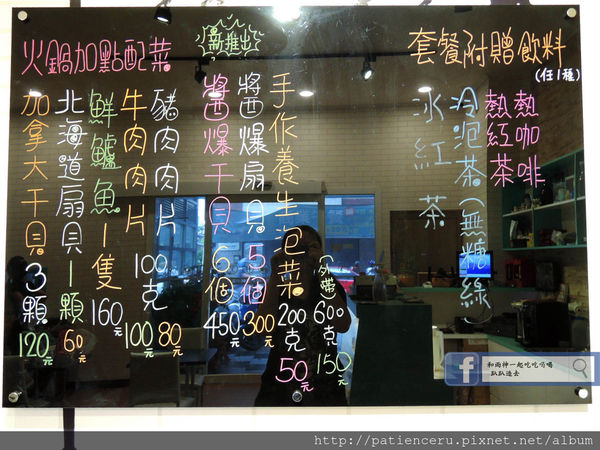 套餐附贈飲料
(任1種)
熱咖啡
熱紅茶
冷泡茶(無糖綠)
冰紅茶
新推出
手作養生泡菜200克50元
(外帶)600克150元
醬爆扇貝5個300元
醬爆干貝6個450元
火鍋加點配菜
豬肉肉片100克80元
牛肉肉片100元
鮮鱸魚1隻160元
北海道扇貝1顆60元
加拿大干貝3顆120元
和雨神一起吃吃喝喝
趴趴造去
http://patienceru.pixnet.net/album